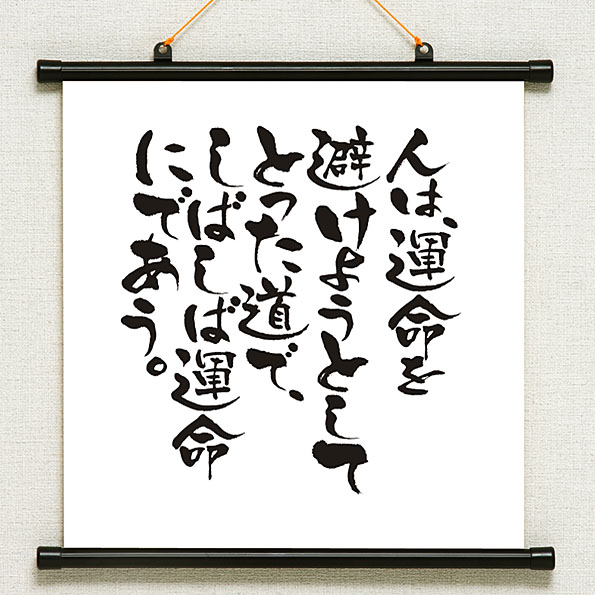 人は、運命を
避けようとして
とった道で、
しばしば運命
にであう。